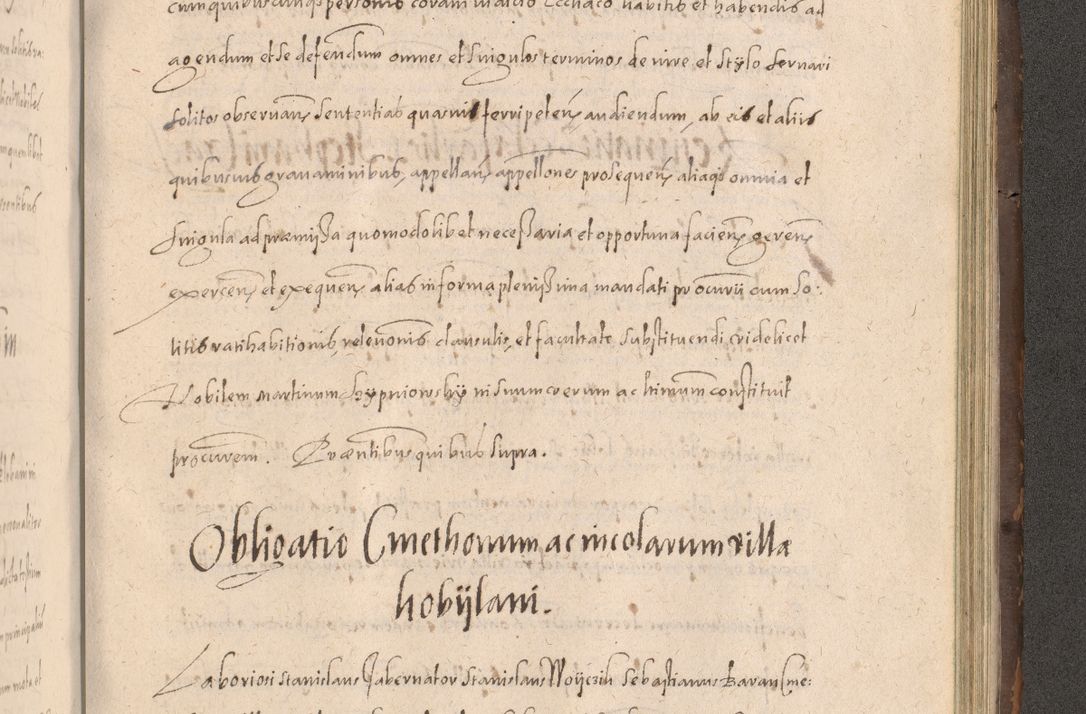 cumquibuscunqs personis coram iudicio Eccliaco habitis et habendis ad
agendum et se defendum omnes et singulos terminos de iure et stylo servari
solitos observan̄ sententias quasuis ferri peten̄ audiendum, ab eis et aliis
quibusuis grauaminibus, appellan̄ appellones prosequen̄ aliaqs omnia et
singula ad præmissa quomodolibet necessaria et opportuna facien̄ geren̄
exercen̄ et exequen̄ alias in forma plenissima mandati procurii cum so:
litis ratihabitionis, relevonis clausulis, et facultate substituendi videlicet
Nobilem Martinum in suum verum ac ltimum constituit
procurem. Præntibus quibus supra.
Obligatio Cmethonum ac incolarum villa
kobijlani.
Laboriosi Stanislaus Tabernator Stanislaus Woijczik Sebastianus Baran Cme: